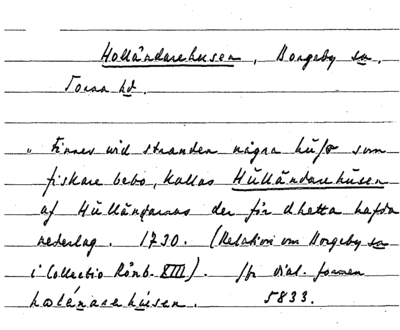 Holländarehusen, Borgeby sn.
Torna hd.
„ Finnes wid stranden några hüsr som
fiskare bebo, kallas Hülländarehüsen
af Hülländarnas der för dhetta hafda
nederlag. 1730. (Relation om Borgeby sn
i Collectio Rönb. XIII). Jfr dial. formen
holánarehúsen. 5833.